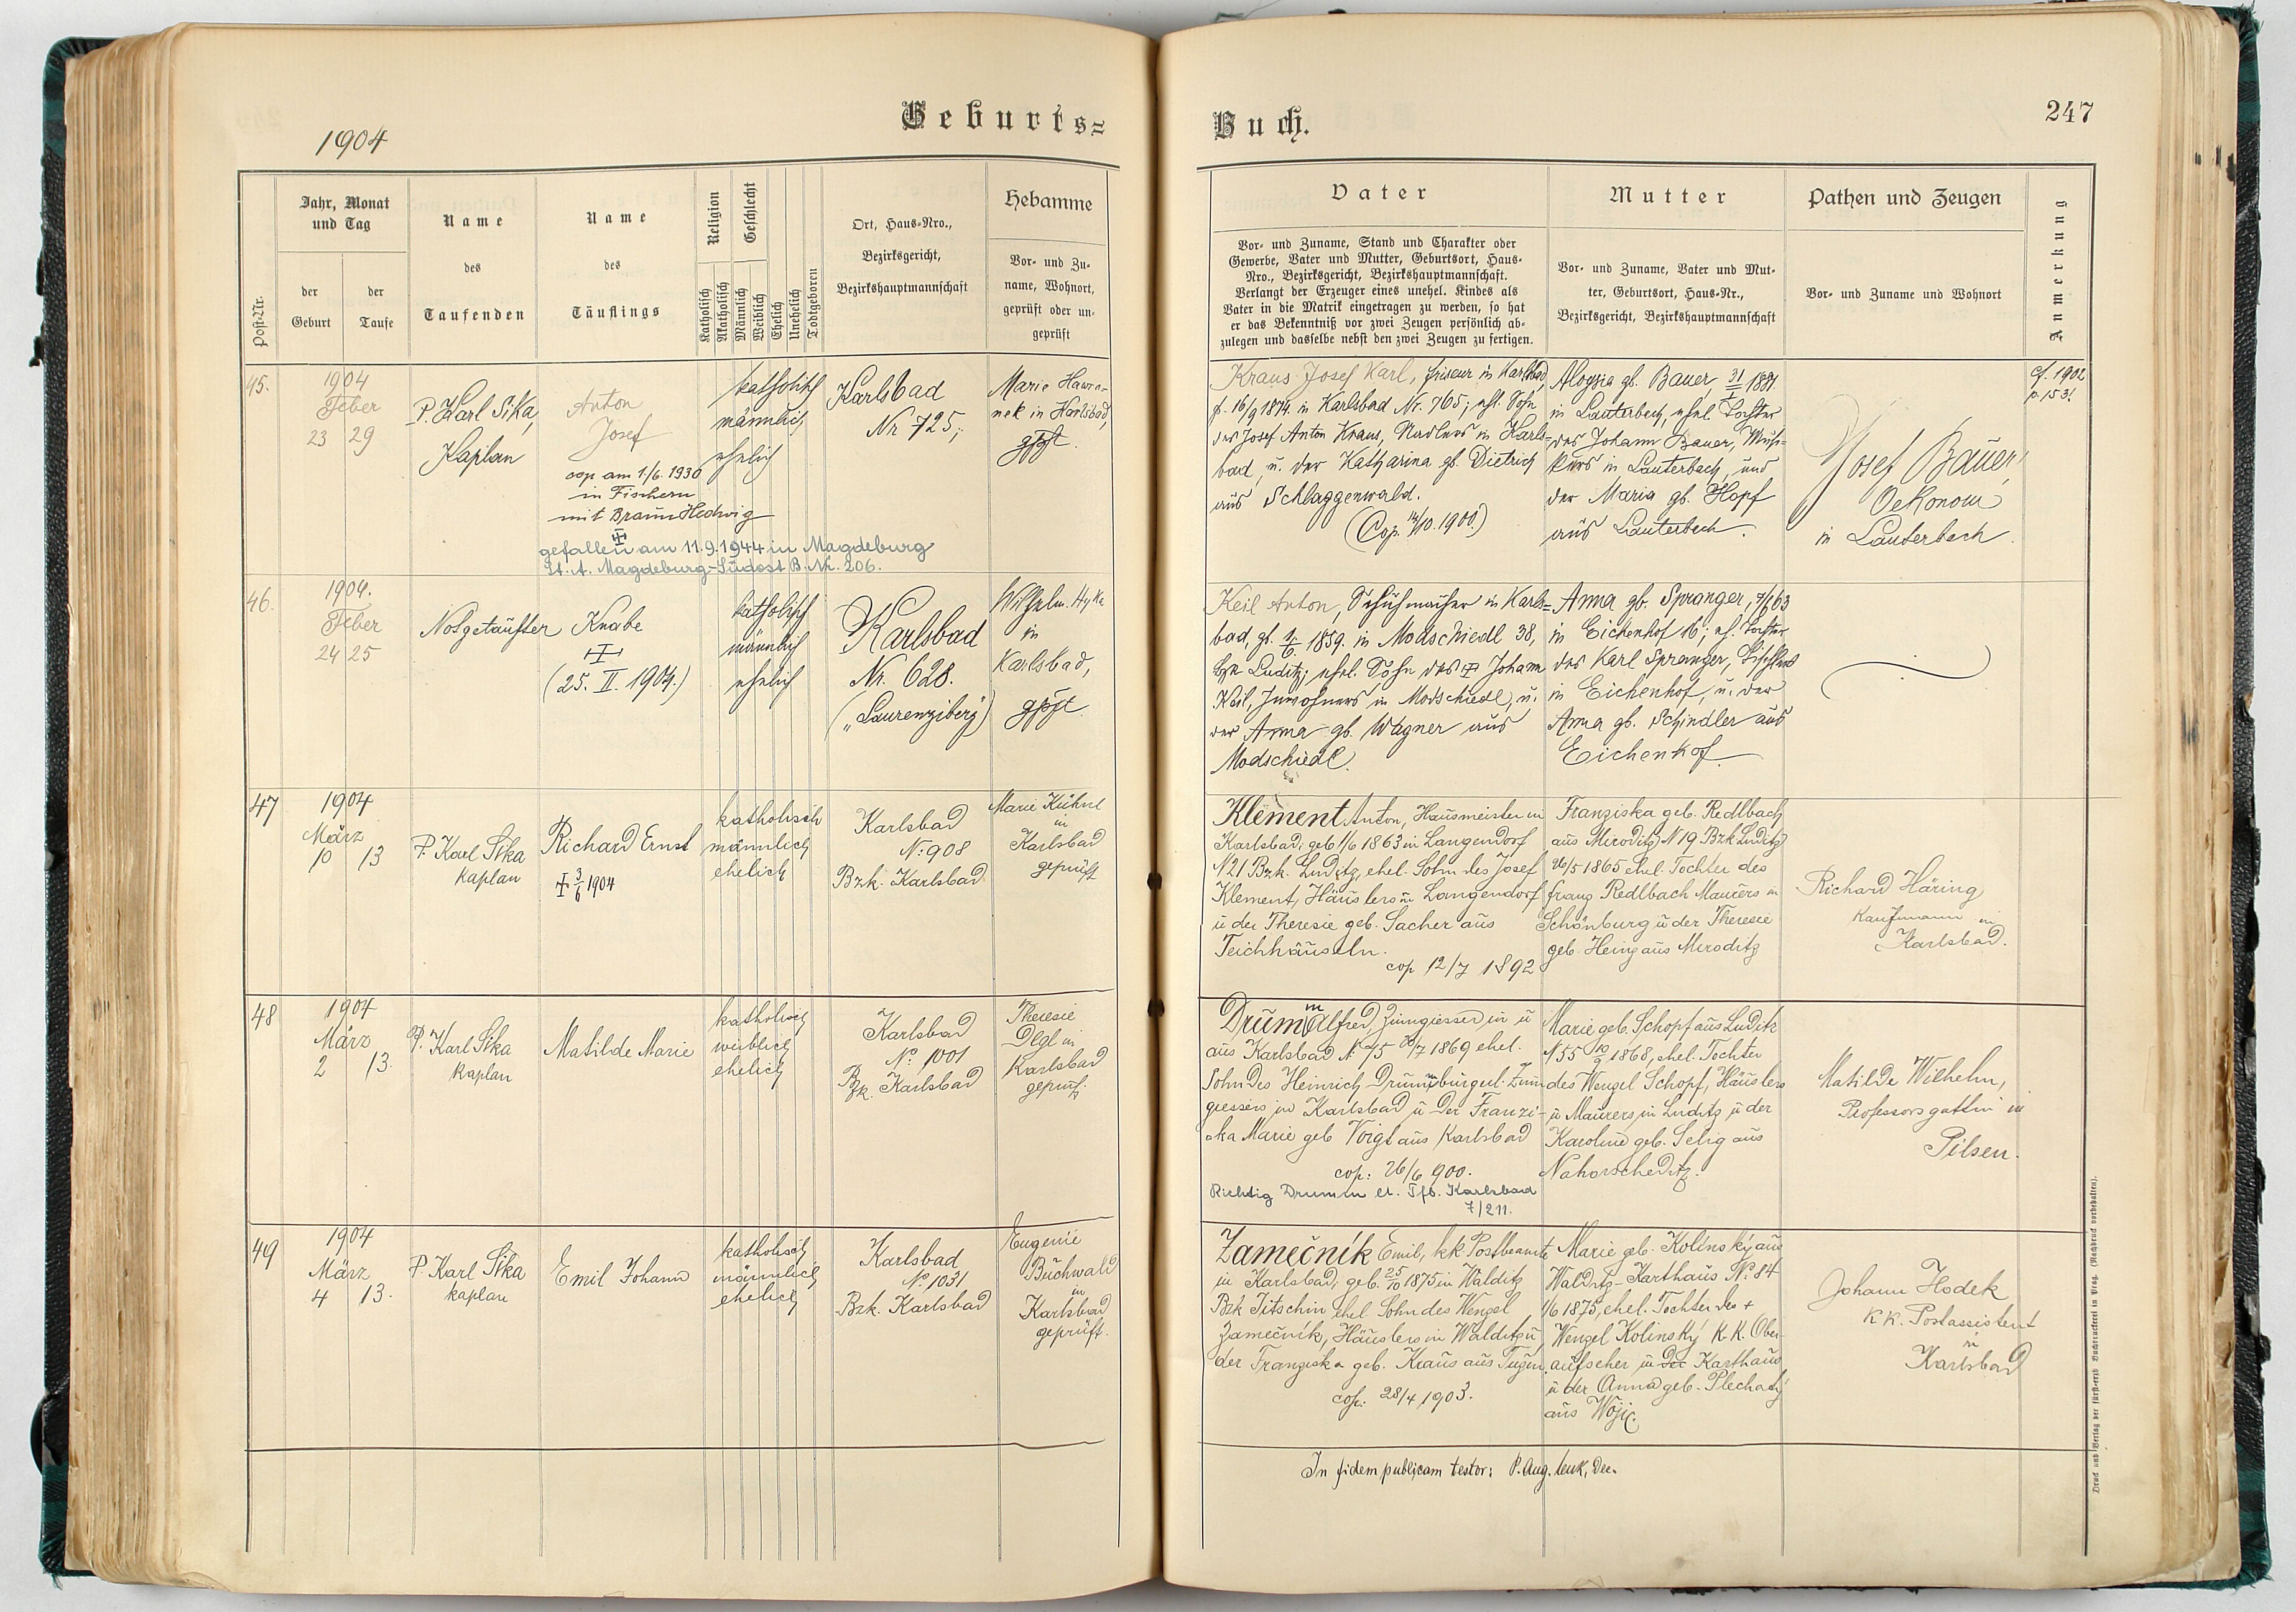 1904
Geburts=
Post-Nr.
Jahr, Monat
und Tag
der
Geburt
der
Taufe
Name
des
Taufenden
Name
des
Täuflings
Religion
Geschlecht
Katholisch
Akatholisch
Männlich
Weiblich
Ehelich
Unehelich
Todtgeboren
Ort, Haus=Nro.,
Bezirksgericht,
Bezirkshauptmannschaft
Hebamme
Vor= und Zu=
name, Wohnort,
geprüft oder un=
geprüft
45.
1904
Feber
23 29
P. Karl Sika,
Kaplan
Anton
Josef
cop am 1/6. 1930
in Fischern
mit Braun Hedwig
gefallen am 11.9.1944 in Magdeburg
St. A. Magdeburg-Südost B. Nr. 206.
katholisch
männlich
ehelich
Karlsbad
Nr 725;
Marie Hawra-
nek in Karlsbad,
gpft.
46.
1904.
Feber
24 25
Notgetaufter
Knabe
(25. II. 1904.)
katholisch
männlich
ehelich
Karlsbad
Nr. 628.
("Laurenziberg")
Wilhelm. Hyka
in
Karlsbad,
gpft.
47
1904
März
10 13
P. Karl Sika
Kaplan
Richard Ernst
3/6 1904
katholisch
männlich
ehelich
Karlsbad
N: 908
Bzk. Karlsbad
Marie Kühnl
in
Karlsbad
geprüft
48
1904
März
2 13.
P. Karl Sika
Kaplan
Matilde Marie
katholisch
weiblich
ehelich
Karlsbad
No. 1001
Bzk. Karlsbad
Theresie
Dlgl in
Karlsbad
geprüft.
49
1904
März
4 13.
P. Karl Sika
Kaplan
Emil Johann
katholisch
männlich
ehelich
Karlsbad
No. 1031
Bzk. Karlsbad
Eugenie
Buchwald
in
Karlsbad
geprüft.
Buch.
247
Vater
Vor= und Zuname, Stand und Charakter oder
Gewerbe, Vater und Mutter, Geburtsort, Haus=
Nro., Bezirksgericht, Bezirkshauptmannschaft.
Verlangt der Erzeuger eines unehel. Kindes als
Vater in die Matrik eingetragen zu werden, so hat
er das Bekenntniß vor zwei Zeugen persönlich ab=
zulegen und dasselbe nebst den zwei Zeugen zu fertigen.
Mutter
Vor= und Zuname, Vater und Mut=
ter, Geburtsort, Haus=Nr.,
Bezirksgericht, Bezirkshauptmannschaft
Pathen und Zeugen
Vor= und Zuname und Wohnort
Anmerkung
Kraus Josef Karl, Friseur in Karlsbad,
g. 16/9 1874 in Karlsbad Nr. 765; ehl. Sohn
des Josef Anton Kraus, Nadlers in Karls=
bad, u. der Katharina gb. Dietrich
aus Schlaggenwald.
(Cop. 14/10. 1900.)
Aloysia gb. Bauer, 31/1 1881.
in Lauterbach, ehel Tochter
des Johann Bauer, Musi=
kers in Lauterbach, und
der Maria gb. Hopf
aus Lauterbach.
Josef Bauer,
Oekonom
in Lauterbach.
cf. 1902
p. 153!
Keil Anton, Schuhmacher in Karls=
bad, gb. 1/6. 1859. in Modschiedl 38,
Bzk Luditz; ehel. Sohn des + Johann
Keil, Inwohners in Modschiedl, u.
der Anna gb. Wagner aus
Modschiedl.
Anna gb. Spranger, 7/6 63
in Eichenhof 16; eh. Tochter
des Karl Spranger, Tischlers
in Eichenhof, u. der
Anna gb. Schindler aus
Eichenhof.
Klement Anton, Hausmeister in
Karlsbad; geb 1/6 1863 in Langendorf
N 21 Bzk. Luditz, ehel. Sohn des Josef
Klement, Häuslers in Langendorf
u der Theresie geb. Sacher aus
Teichhäuseln.
cop 12/7 1892
Franziska geb. Redlbach
aus Miroditz N 19 Bzk Luditz
26/5 1865 ehel. Tochter des
Franz Redlbach Maurers in
Schönburg u der Theresie
geb. Heinz aus Miroditz
Richard Häring
Kaufmann in
Karlsbad.
Drumm Alfred, Zinngiesser in u
aus Karlsbad N. 75 /7 1869 ehel.
Sohn des Heinrich Drumm bürgerl. Zinn
giessers in Karlsbad u der Franzi-
ska Marie geb Voigt aus Karlsbad
cop: 26/6 900.
Richtig Drumm lt. Tfb. Karlsbad
7/211.
Marie geb. Schopf aus Luditz
N 55 10/9 1868, ehel. Tochter
des Wenzel Schopf, Häuslers
u Maurers in Luditz u der
Karoline geb. Selig aus
Nahorscheditz.
Matilde Wilhelm,
Professorsgattin in
Pilsen.
Zamečník Emil, kk Postbeamte
in Karlsbad; geb. 25/10 1875 in Walditz
Bzk Jitschin ehel. Sohn des Wenzel
Zamečník, Häuslers in Walditz u
der Franziska geb. Kraus aus Tuzin
cop: 28/4 1903.
Marie geb. Kolínský aus
Walditz-Karthaus No. 84
1/6 1875, ehel. Tochter des +
Wenzel Kolinský K. K. Ober-
aufseher in der Karthaus
u der Anna geb. Plechatý
aus Wojic.
Johann Hodek
k k. Postassistent
in
Karlsbad
In fidem publicam testor: P. Aug. Lenk, Dec.
Druck und Verlag der fürst=erzb Buchdruckerei in Prag. (Nachdruck vorbehalten).